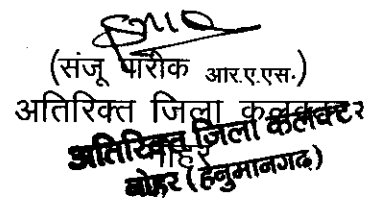 (संजू पारीक आर.ए.एस.)
अतिरिक्त जिला कलक्टर
नोहर
अतिरिक्त जिला कलेक्टर
नोहर (हनुमानगढ़)